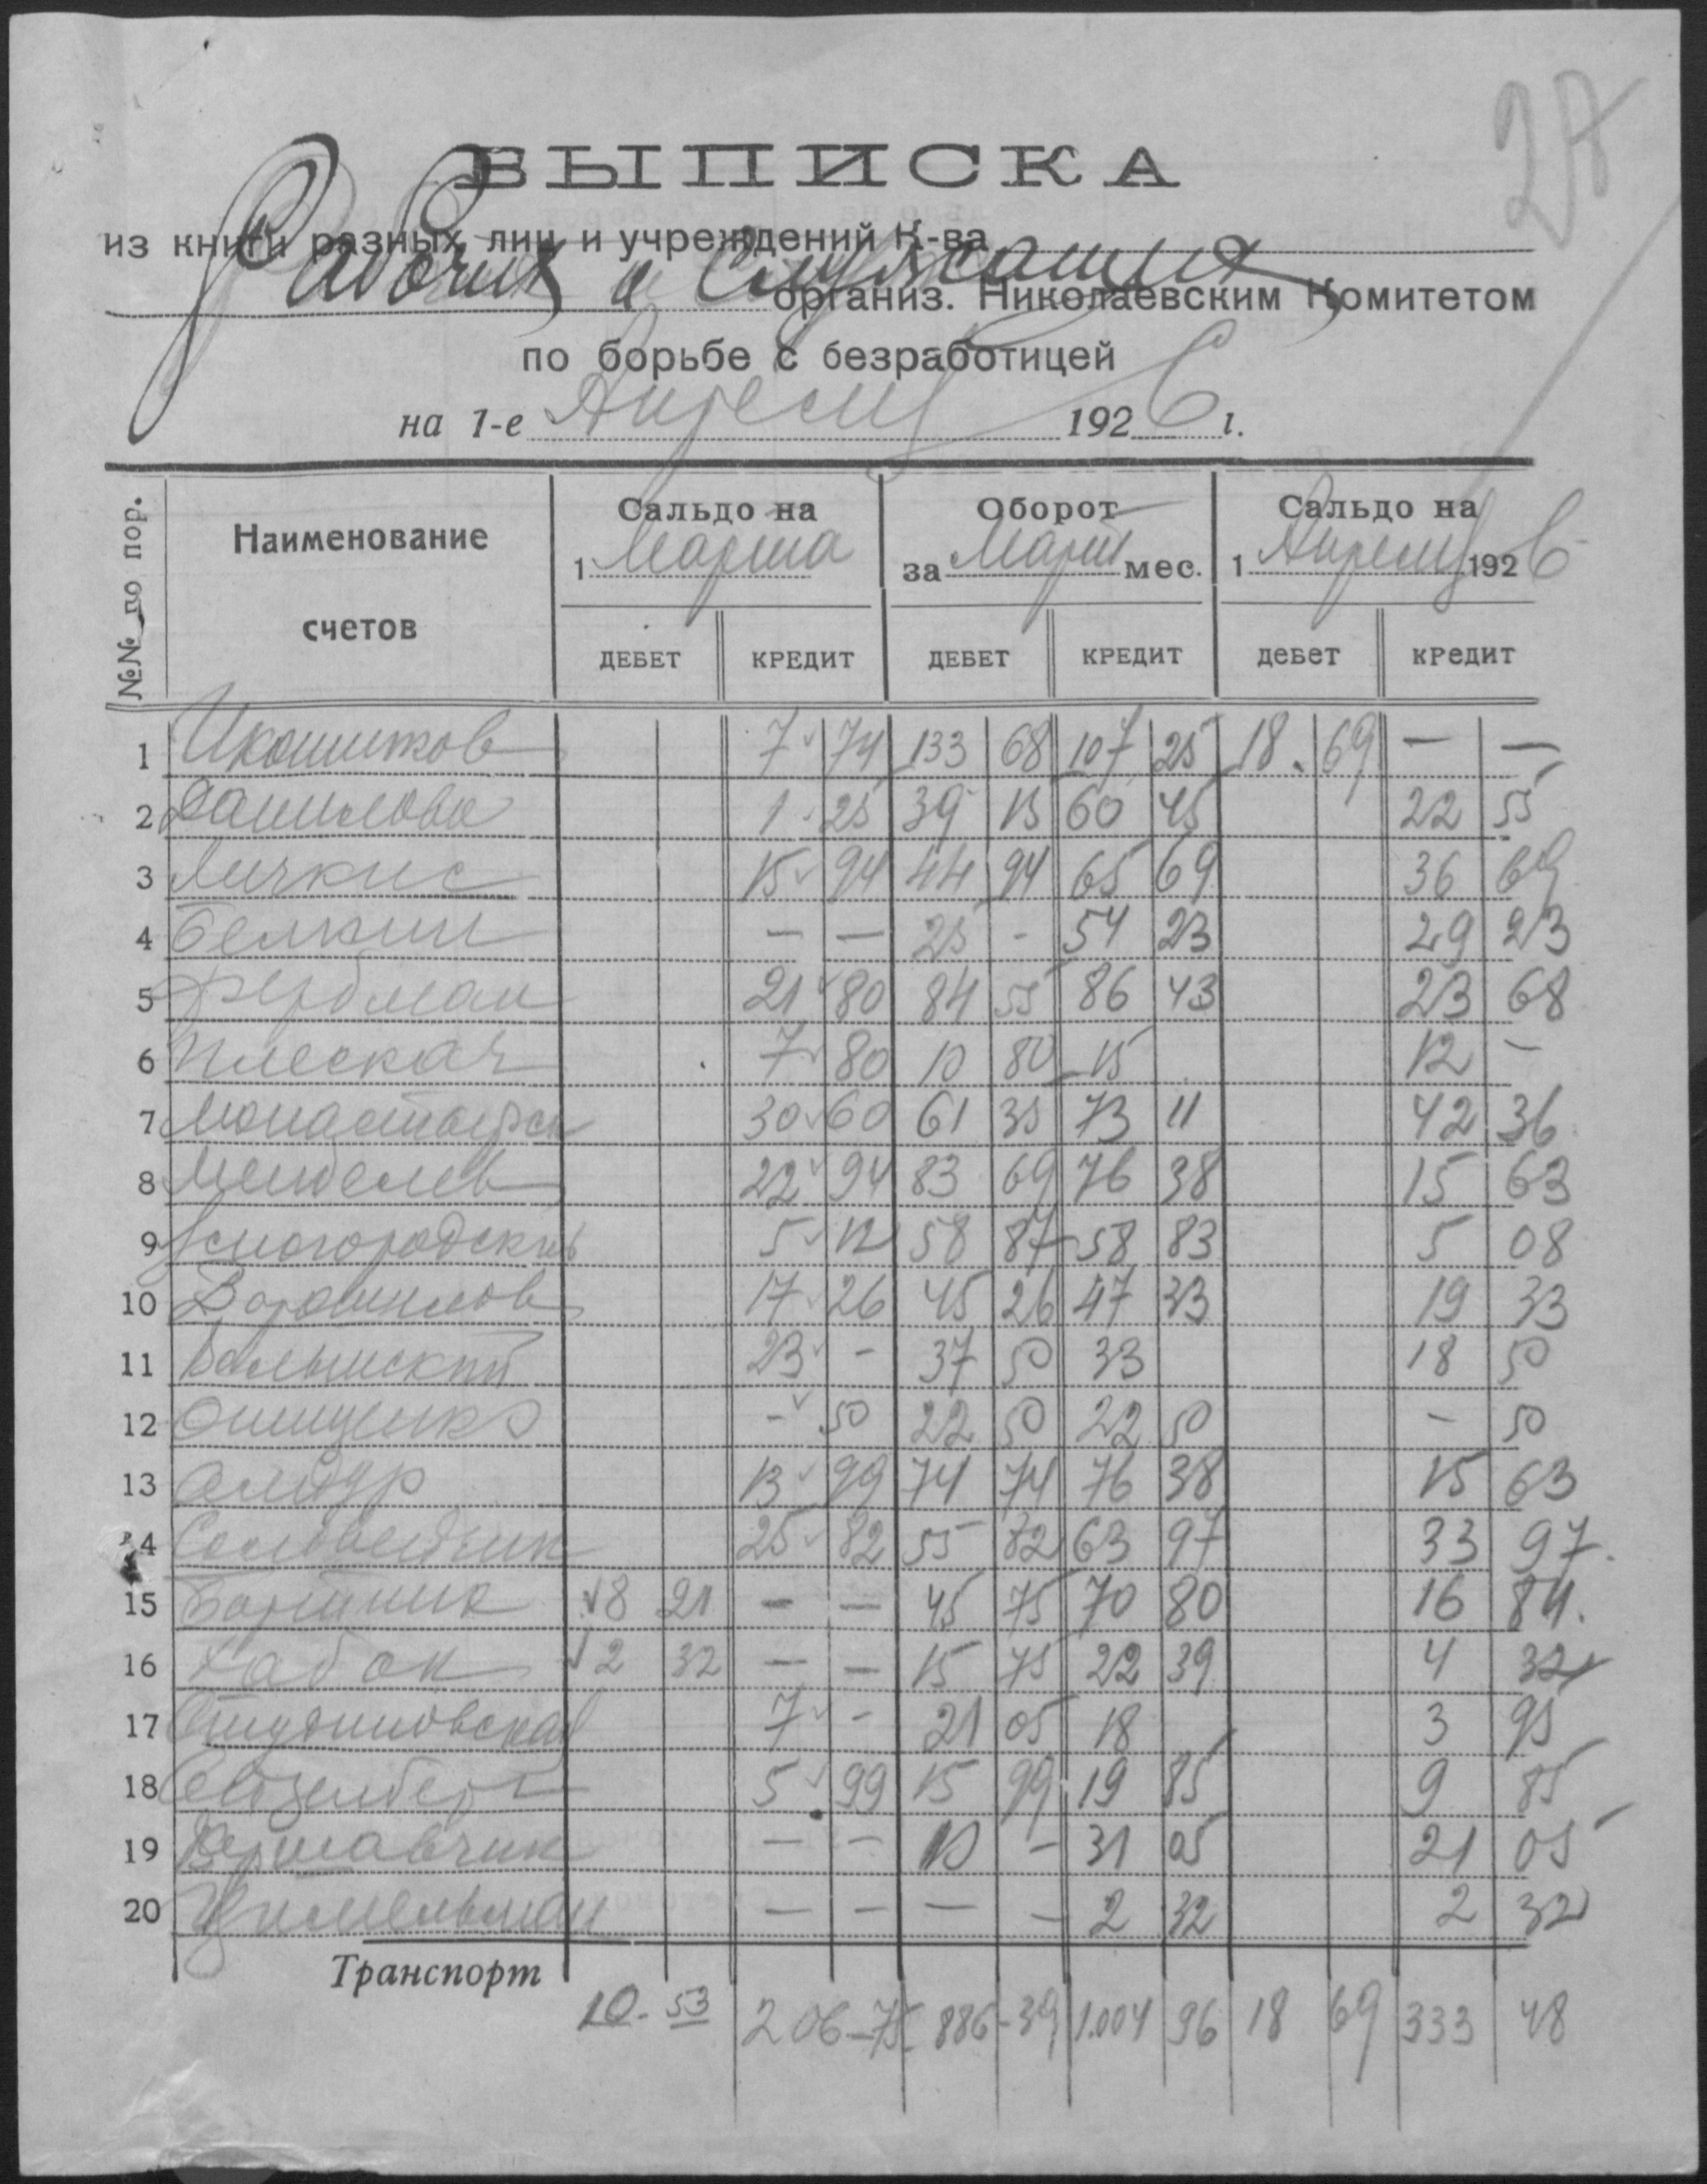 27
ВЫПИСКА
из книги разных лиц и учреждений К-ва
Рабочих и Служащих
организ. Николаевским Комитетом
по борьбе с безработицей
на 1-е Апреля 1926 г.
№№ по пор. Наименование счетов Сальдо на 1 Марта Оборот за Март мес. Сальдо на 1 Апреля 1926
ДЕБЕТ КРЕДИТ ДЕБЕТ КРЕДИТ дебет кредит
1 7 74 133 68 107 25 18 69 — —
2 Данилова 1 25 39 15 60 45 22 55
3 Личкис 15 94 44 94 65 69 36 69
4 Белкин — — 25 - 54 23 29 23
5 Фербман 21 80 84 55 86 43 23 68
6 Плескач 7 80 10 80 15 12 -
7 Монастырск 30 60 61 35 73 11 42 36
8 22 94 83 69 76 38 15 63
9 Ясногородский 5 12 58 87 58 83 5 08
10 Ворошилов 17 26 45 26 47 33 19 33
11 Волынский 23 - 37 50 33 18 50
12 Онищенко - 50 22 50 22 50 - 50
13 13 99 74 74 76 38 15 63
14 25 82 55 82 63 97 33 97
15 Бортник 8 21 — — 45 75 70 80 16 84
16 Хабок 2 32 — — 15 75 22 39 4 32
17 7 - 21 05 18 3 95
18 5 99 15 99 19 85 9 85
19 Варшавчик — — 10 - 31 05 21 05
20 Цимельман — — — — 2 32 2 32
Транспорт
10 - 53 206 - 75 886 - 39 1.004 96 18 69 333 48